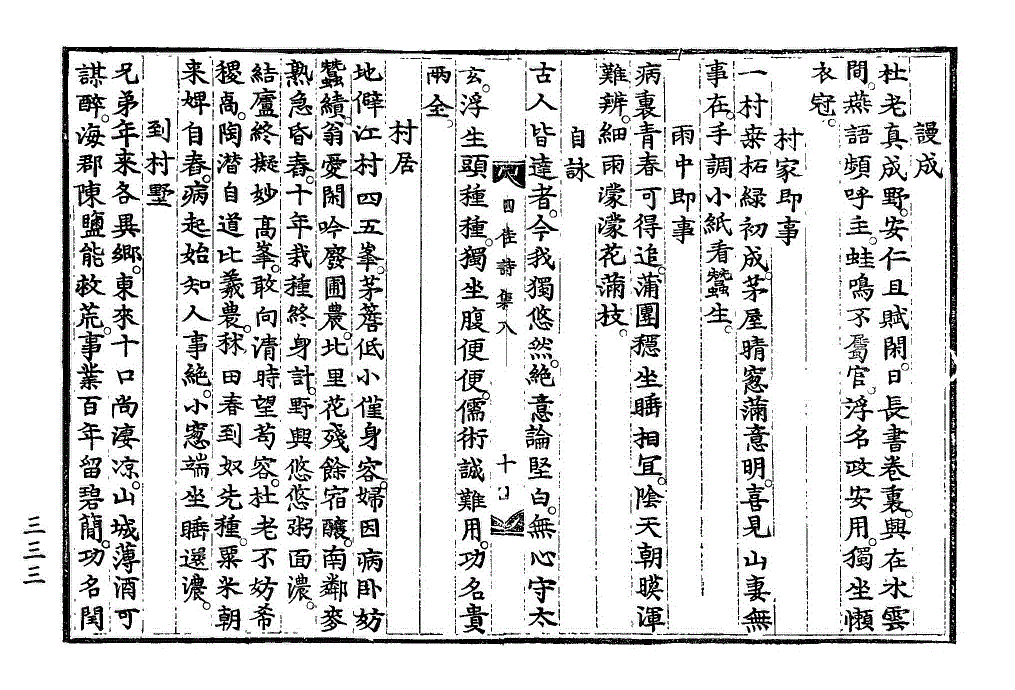 謾成
杜老真成野。安仁且賦閑。日長書卷裏。興在水雲
間。燕語頻呼主。蛙鳴不屬官。浮名政安用。獨坐懶
衣冠。
村家即事
一村桒柘緑初成。茅屋晴窓滿意明。喜見山妻無
事在。手調小紙看蠶生。
雨中即事
病裏青春可得追。蒲團穩坐睡相宜。陰天朝暝渾
難辨。細雨濛濛花滿枝。
自詠
古人皆達者。今我獨悠然。絶意論堅白。無心守太
四隹詩集入
十
玄。浮生頭種種。獨坐腹便便。儒術誠難用。功名貴
兩全。
村居
地僻江村四五峯。茅簷低小僅身容。婦因病卧妨
蠶績。翁愛閑吟廢圃農。北里花殘餘宿釀。南鄰麥
熟急昏舂。十年栽種終身計。野興悠悠粥面濃。
結廬終擬妙高峯。敢向清時望茍容。杜老不妨希
稷卨。陶潛自道比羲農。秫田春到奴先種。粟米朝
来婢自舂。病起始知人事絶。小窓端坐睡還濃。
到村墅
兄弟年来各異郷。東來十口尚凄凉。山城薄酒可
謀醉。海郡陳鹽能救荒。事業百年留碧簡。功名閏
三三三